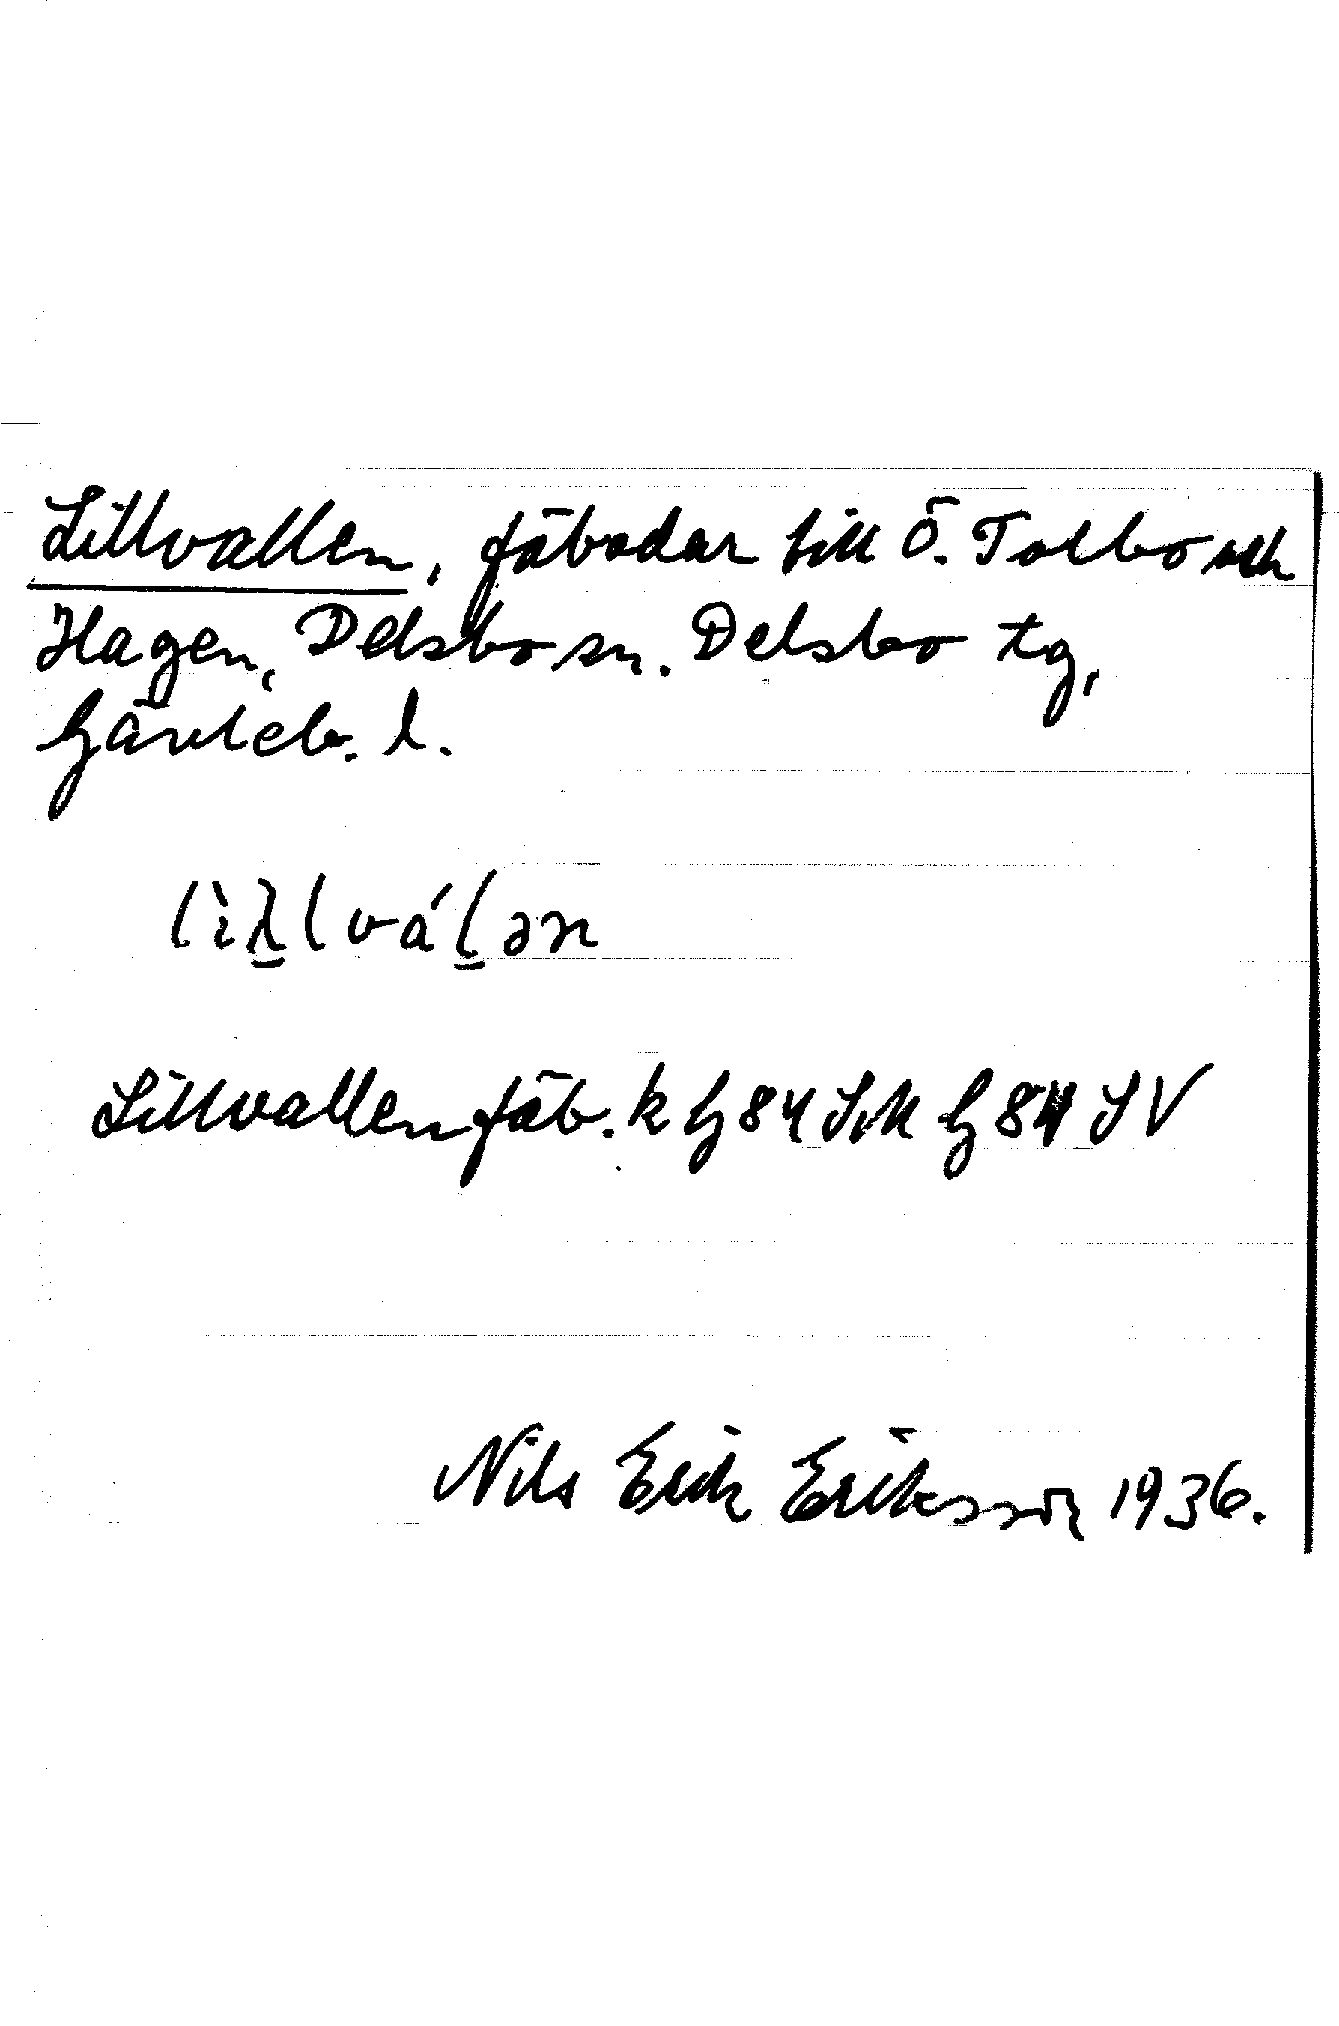 Lillvallen, fäbodar till Ö. Tolbo och
Hagen, Delsbo sn. Delsbo tg,
Gävleb. l.
Lillvallen fäb. k G 84 G 84 SV
Nils Erik Eriksson 1936.